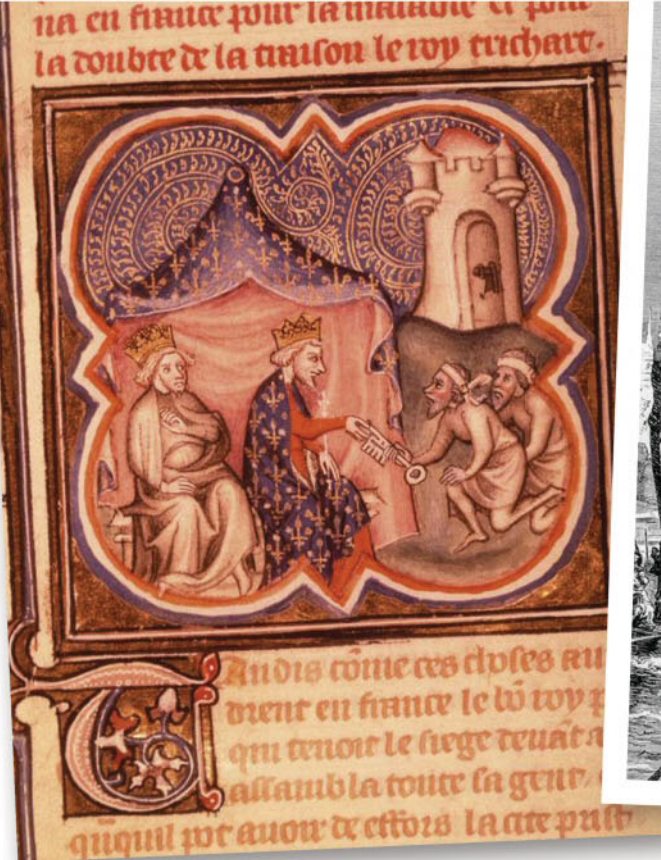 na en france pour la maladie et pour
la doubte de la traison le roy trichart.
Tandis cōme ces choses au
drent en france le bō roy p
qui tenoit le siege deuāt a
assambla toute sa gent,
quiquil pot auoir de effors la cite prist